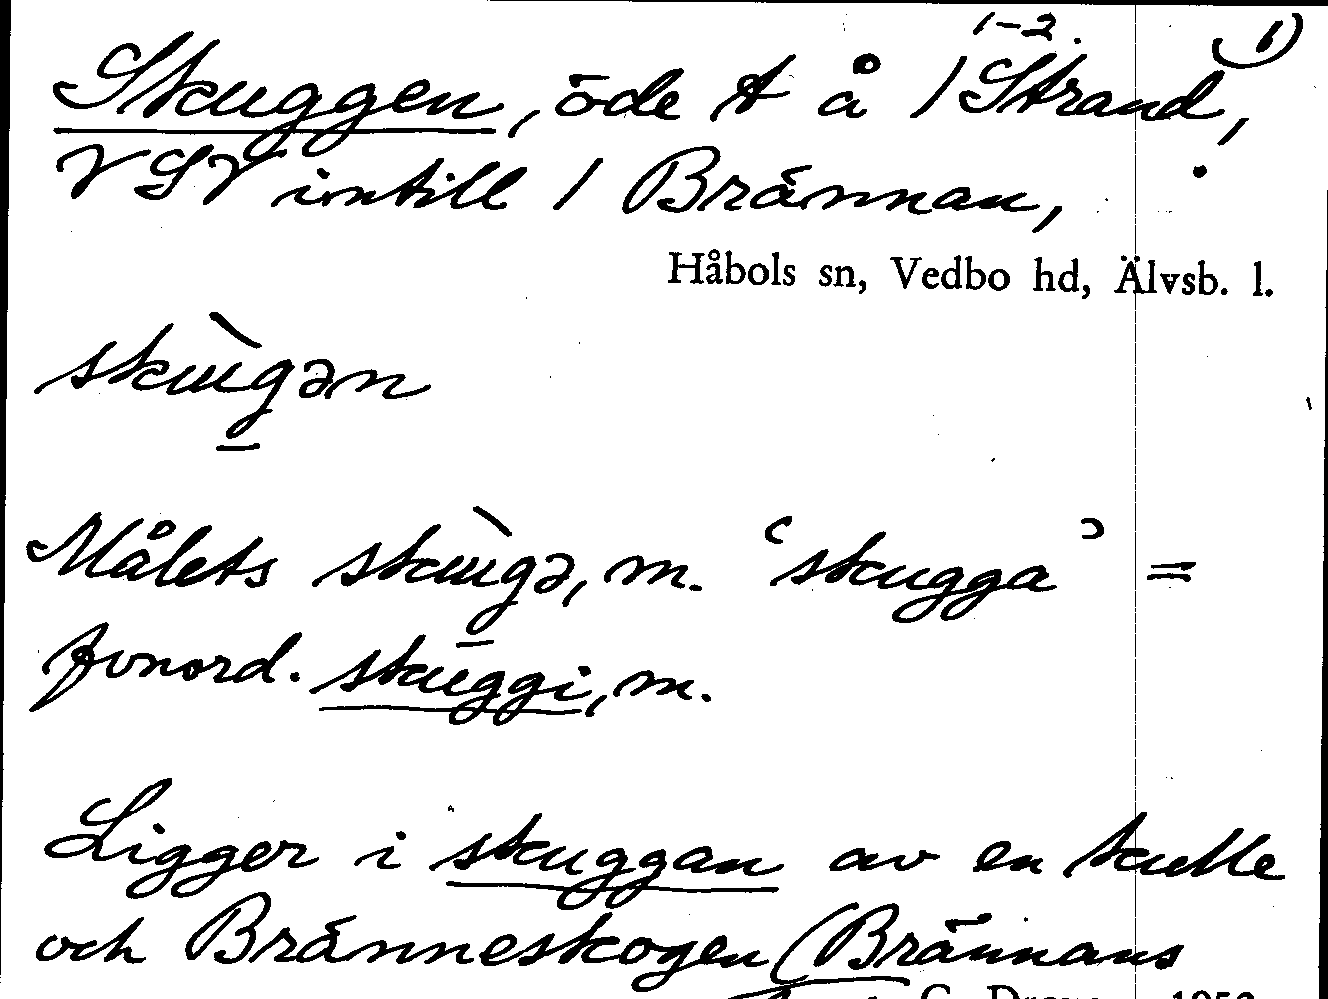 1-2. 1)
Skuggen, öde t å 1 Strand,
VSV intill 1 Brännan,
Håbols sn, Vedbo hd, Älvsb. l.
skɯ̀gən
Målets skɯ̀gə, m. ‘skugga’ =
fvnord. skuggi, m.
Ligger i skuggan av en kulle
och Bränneskogen (Brännans